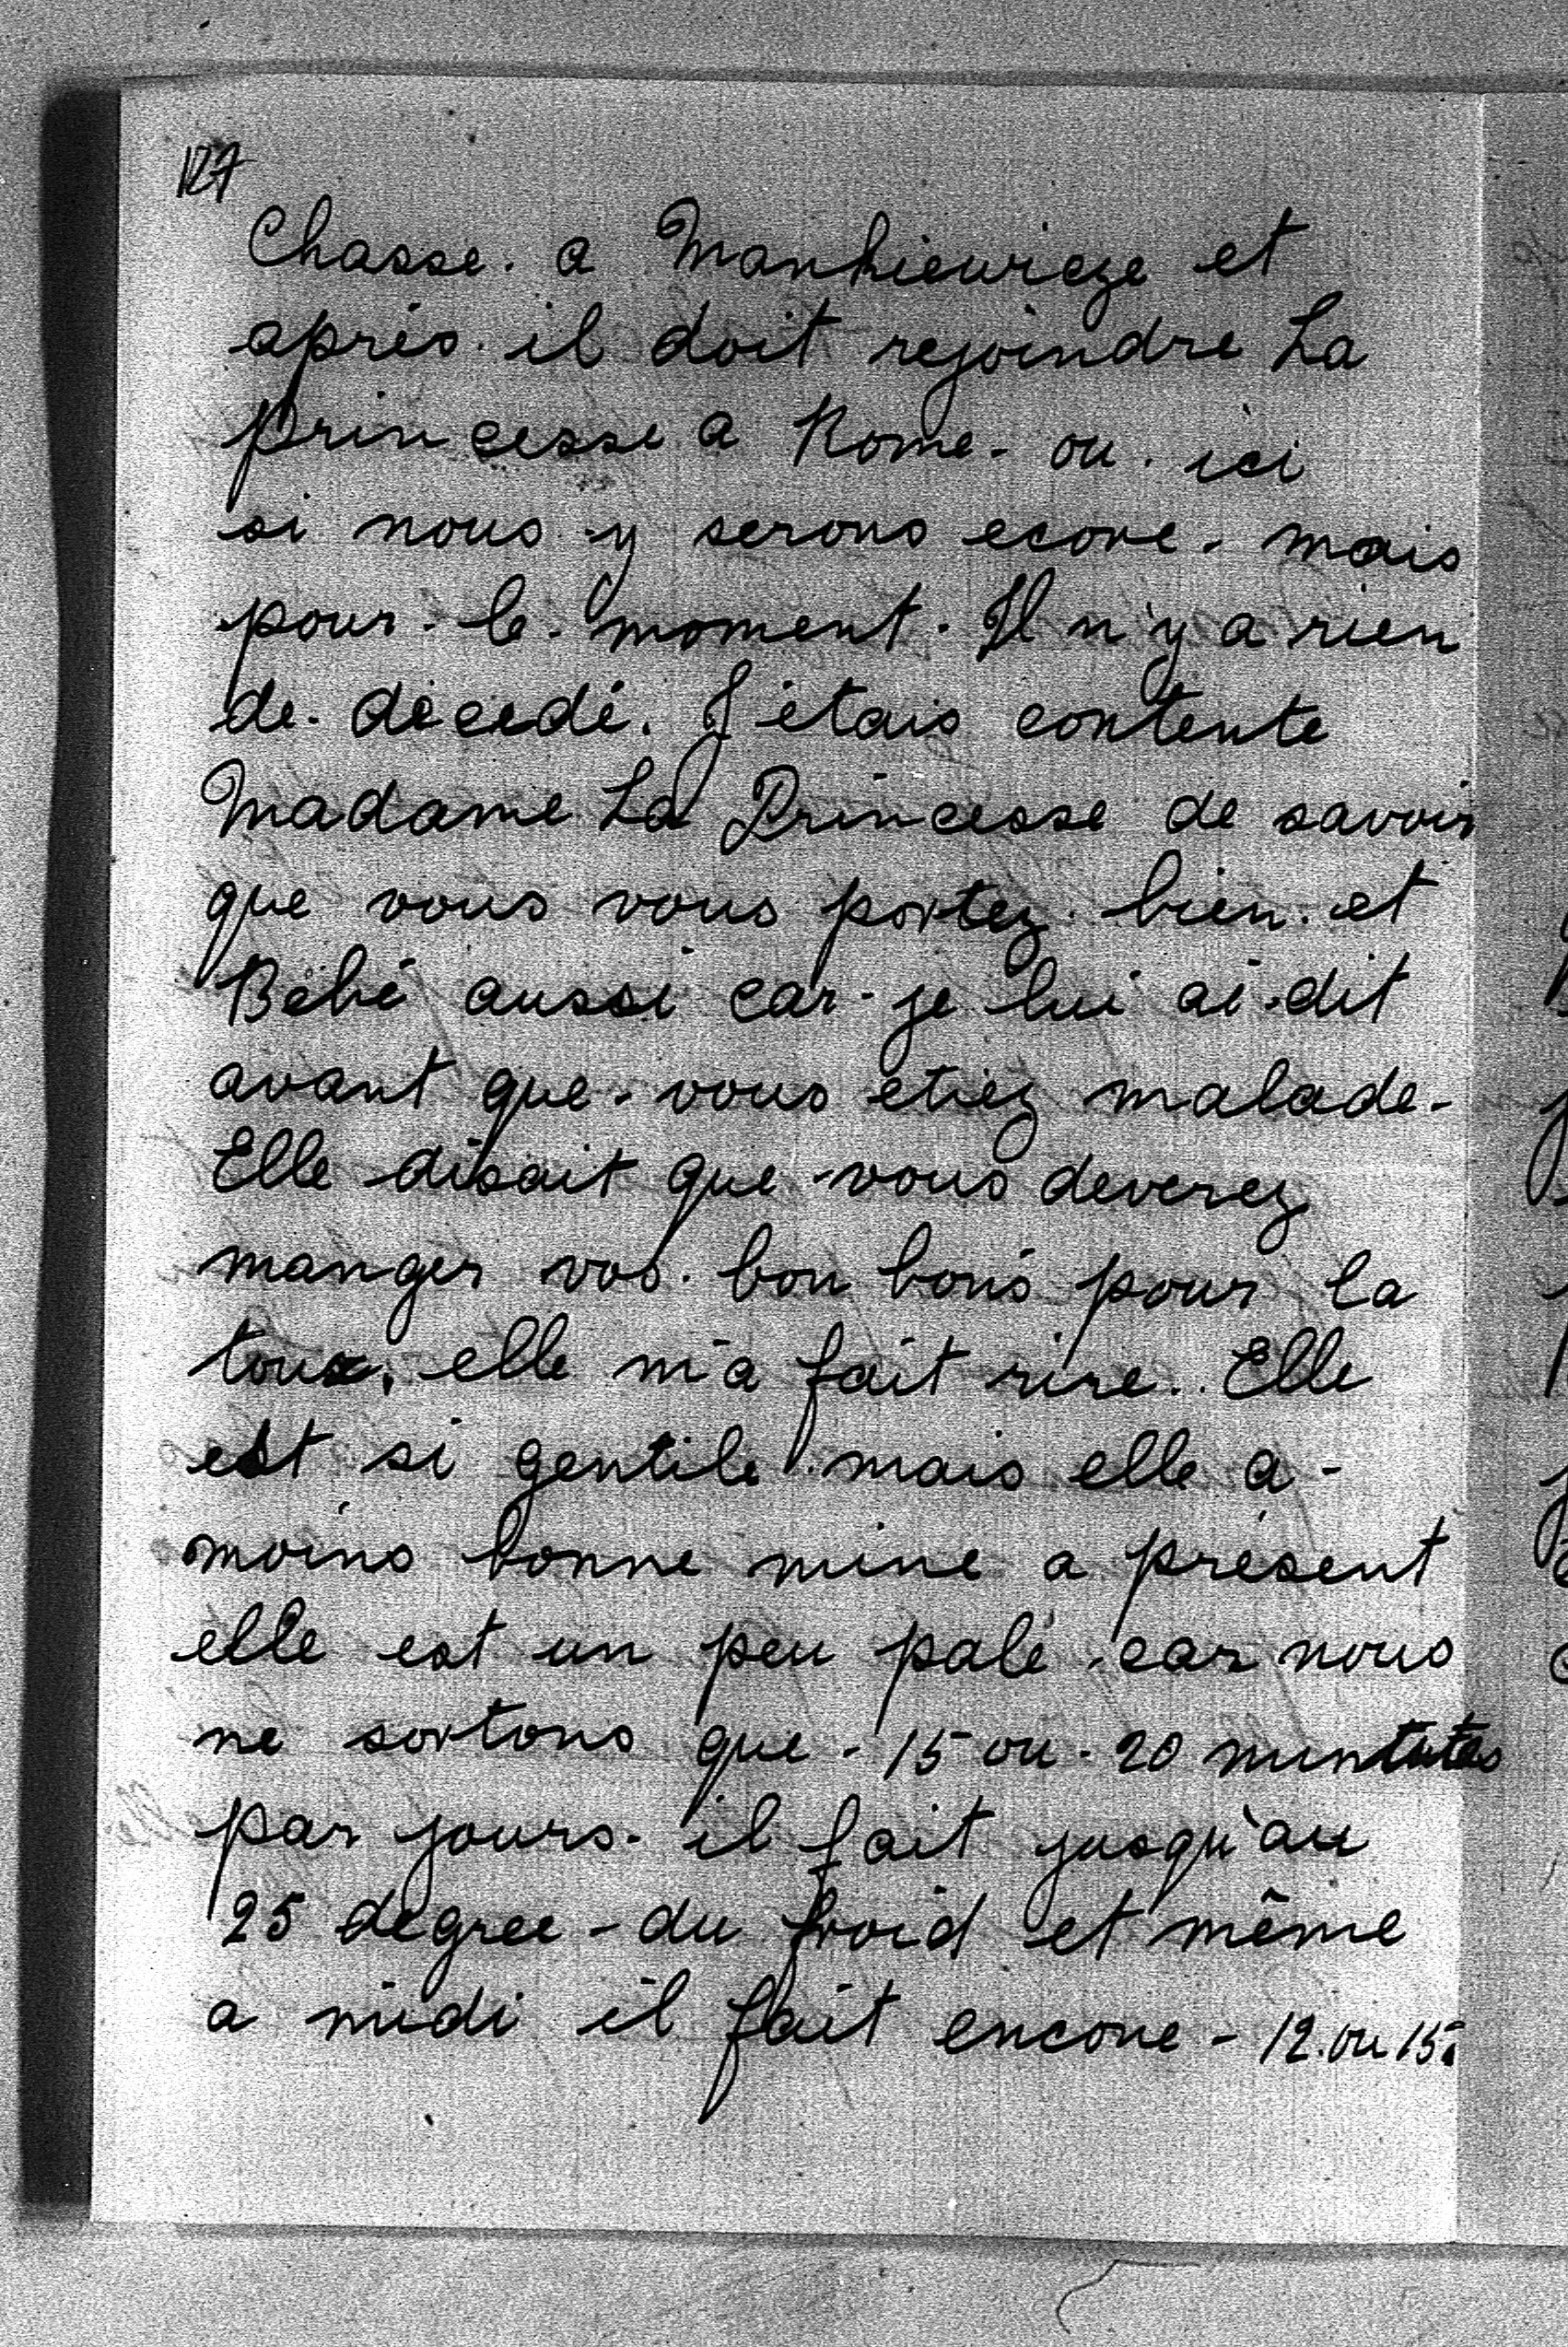 127
Chasse. a Mankiewicze et
après. il doit rejoindre La
princesse a Rome - ou. ici
si nous y serons ecore - mais
pour. le. moment. Il n'y a rien
de. décedé. J'étais contente
Madame La Princesse de savoir
que vous vous portez. bien. et
Bébé aussi car. je lui ai. dit
avant que. vous etiez malade -
Elle disait que vous deverez
manger vos. bon bons pour la
toux, elle m'a fait rire.. Elle
est si gentile. mais elle a -
moins bonne mine a présent
elle est un peu palé. car nous
ne sortons que - 15 ou - 20 minututes
par jours. il fait jusqu'au
25 degree - du froid et même
a midi il fait encore - 12. ou 15.